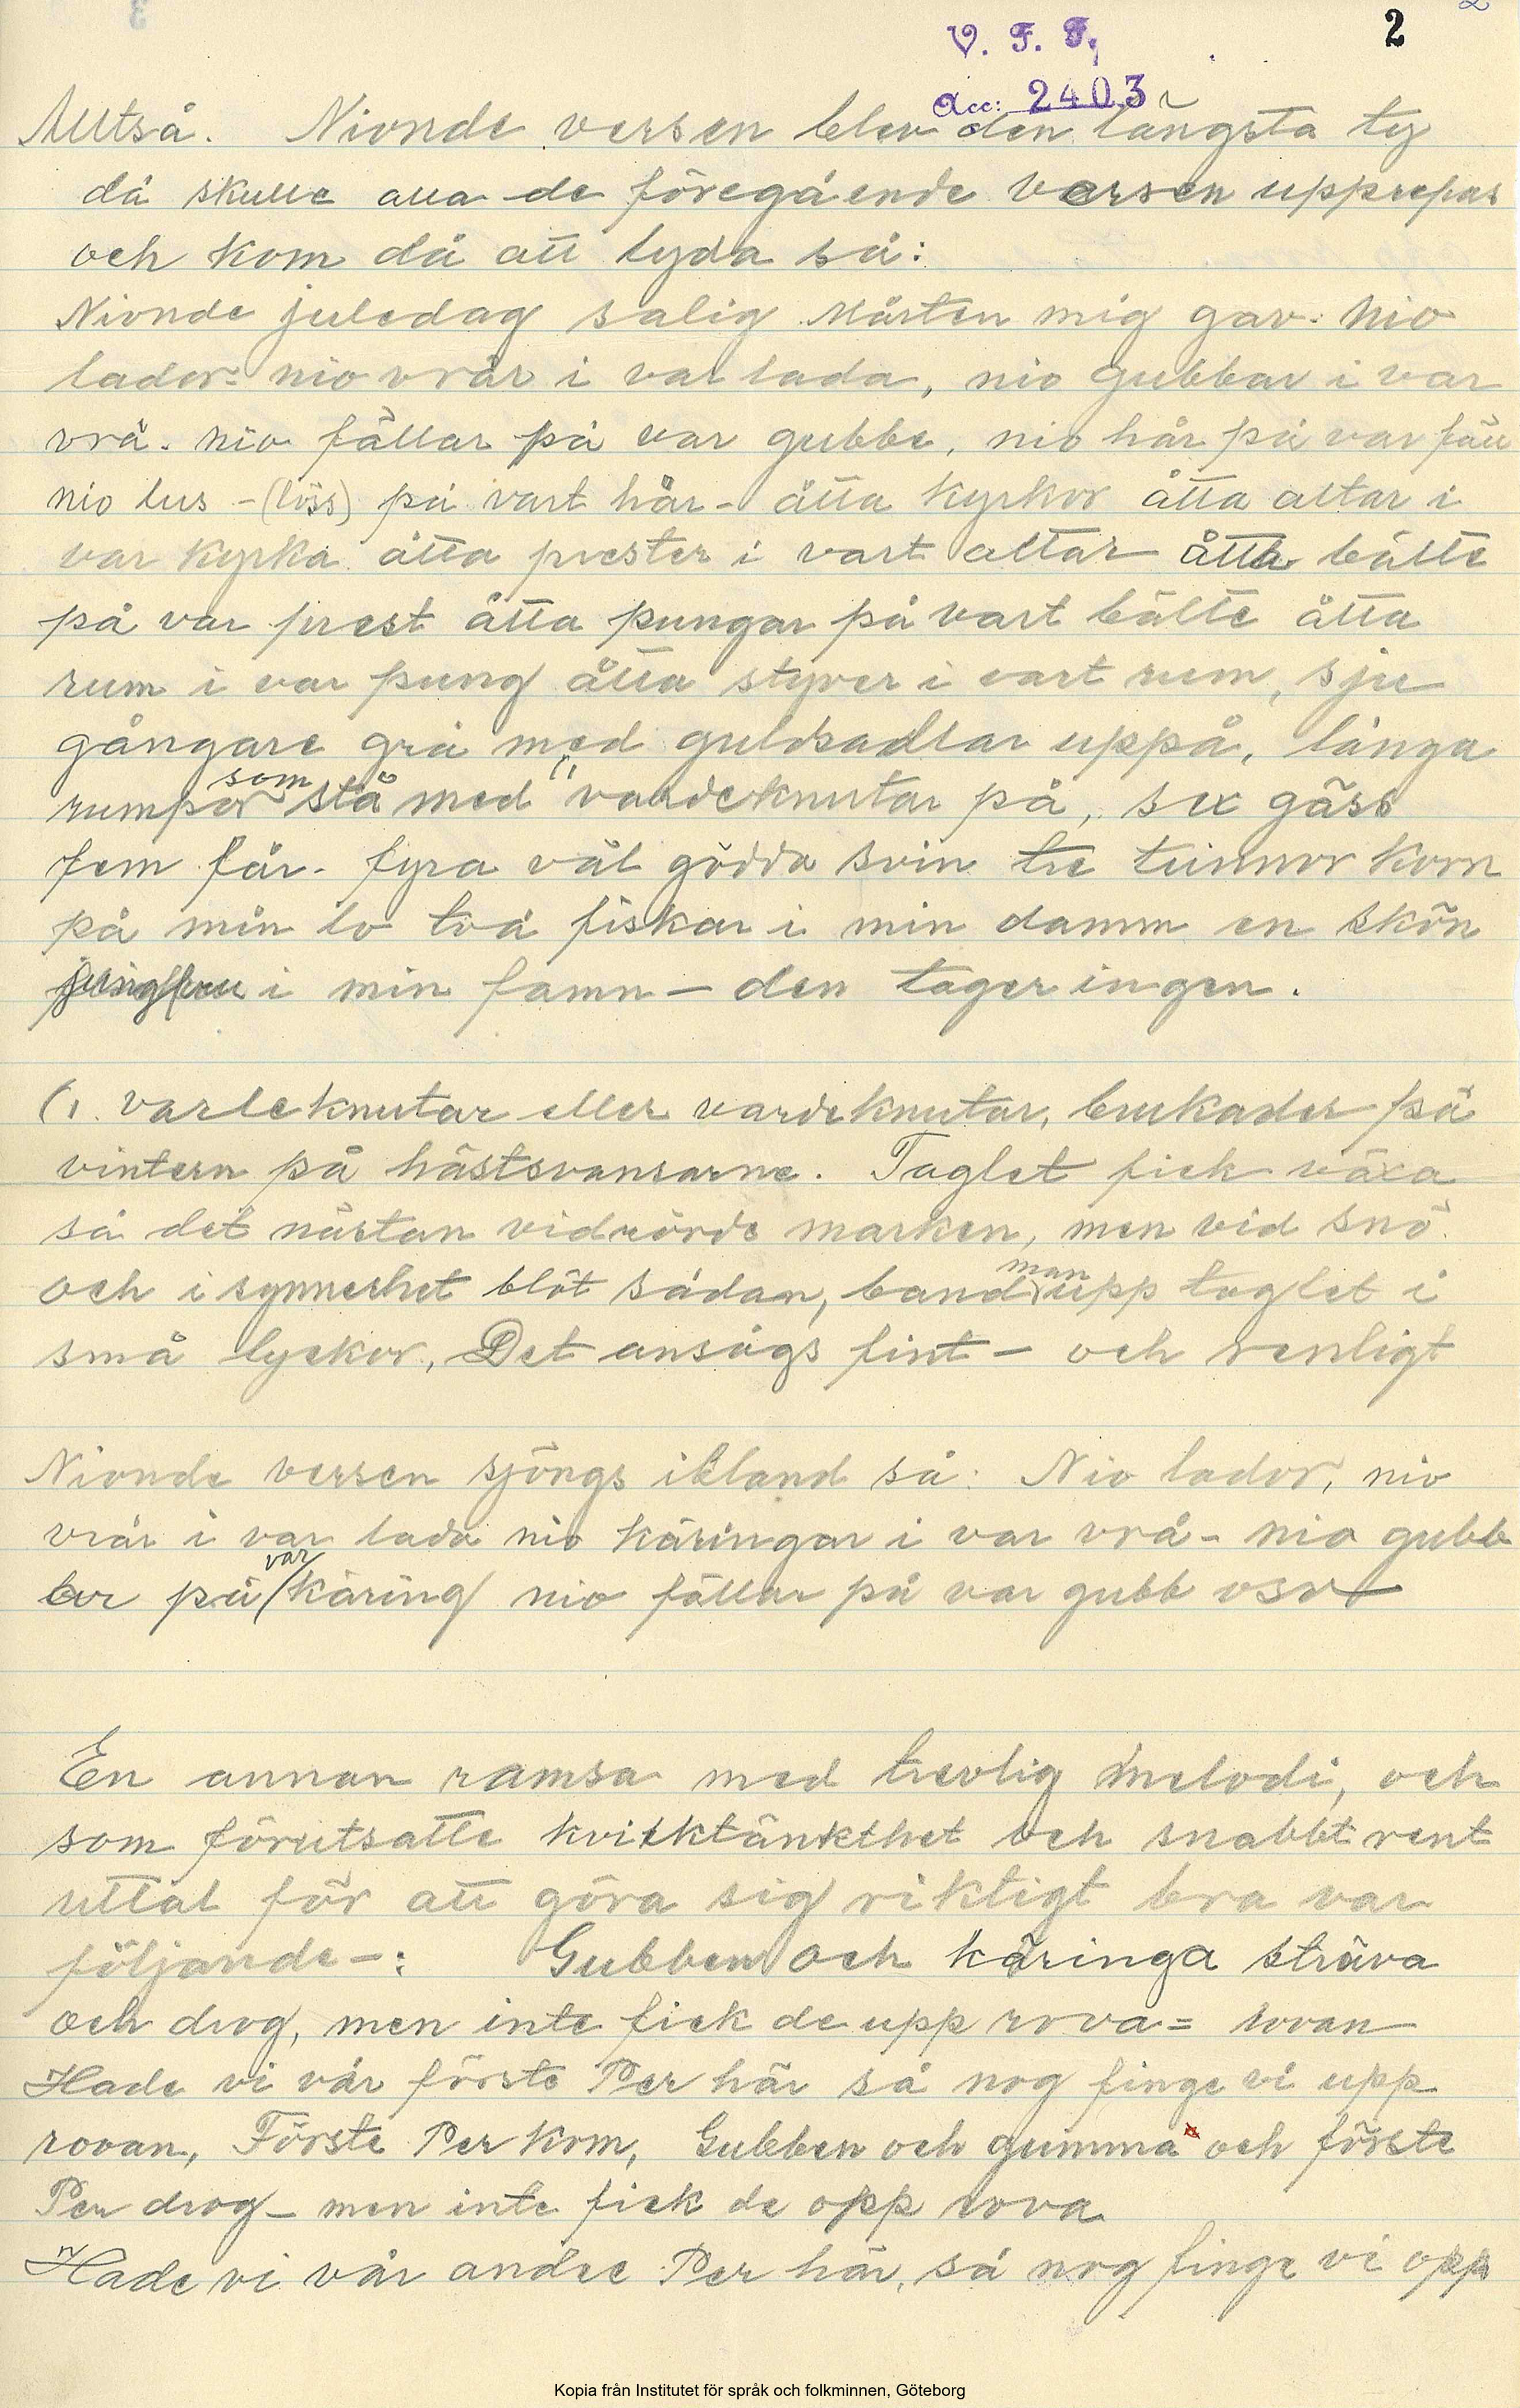 2
V. F. F.
Acc: 2403
Alltså. Nionde versen blev den längsta ty
då skulle alla de föregående versen upprepas
och kom då att lyda så:
Nionde juledag salig Mårten mig gav. Nio
lador- nio vrår i var lada, nio gubbar i var
vrå. nio fällar på var gubbe, nio hår på var fäll
nio lus -(löss) på vart hår- åtta kyrkor åtta altar i
var kyrka åtta prester i vart altar åtta bälte
på var prest åtta pungar på vart bälte åtta
rum i var pung åtta styver i vart rum, sju
gångare grå med guldsadlar uppå, långa
rumpor som stå med (1 vardeknutar på, sex gäss
fem får. fyra väl gödda svin tre tunnor korn
på min lo två fiskar i min damm en skön
jungfru i min famn - den tager ingen.
(1. varleknutar eller vardeknutar, brukades på
vintern på hästsvansarne. Taglet fick växa
så det nästan vidrörde marken, men vid snö
och i synnerhet blöt sådan, band man upp taglet i
små lyckor, Det ansågs fint - och renligt
Nionde versen sjöngs ibland så: Nio lador, nio
vrår i var lada nio käringar i var vrå - nio gubb
bar på var käring nio fällar på var gubb osv
En annan ramsa med trevlig melodi, och
som förutsatte kvicktänkthet och snabbt rent
uttal för att göra sig riktigt bra var
följande -: Gubben och käringa sträva
och drog, men inte fick de upp rova = rovan
Hade vi vår förste Per här så nog finge vi upp
rovan, Förste Per kom, Gubben och gumma och förste
Per drog - men inte fick de opp rova
Hade vi vår andre Per här, så nog finge vi opp
Kopia från Institutet för språk och folkminnen, Göteborg